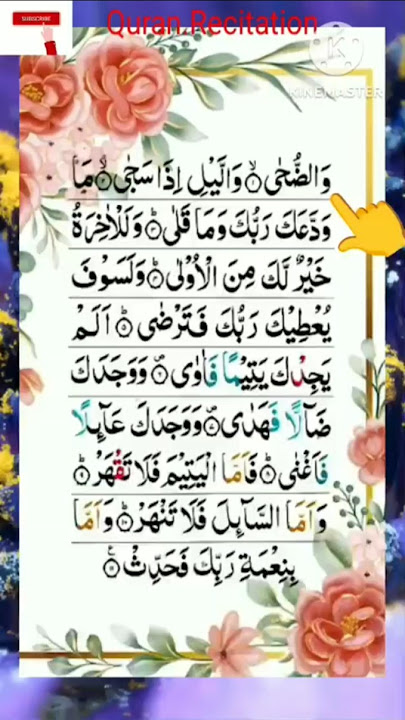 SUBSCRIBE
Quran.Recitation
KINEMASTER
وَالضُّحٰى ۙ۝ وَالَّيْلِ اِذَا سَجٰى ۙ۝ مَا
وَدَّعَكَ رَبُّكَ وَمَا قَلٰى ؕ۝ وَلَلْاٰخِرَةُ
خَيْرٌ لَّكَ مِنَ الْاُوْلٰى ؕ۝ وَلَسَوْفَ
يُعْطِيْكَ رَبُّكَ فَتَرْضٰى ؕ۝ اَلَمْ
يَجِدْكَ يَتِيْمًا فَاٰوٰى ۪۝ وَوَجَدَكَ
ضَآلًّا فَهَدٰى ۪۝ وَوَجَدَكَ عَآئِلًا
فَاَغْنٰى ؕ۝ فَاَمَّا الْيَتِيْمَ فَلَا تَقْهَرْ ؕ۝
وَاَمَّا السَّآئِلَ فَلَا تَنْهَرْ ؕ۝ وَاَمَّا
بِنِعْمَةِ رَبِّكَ فَحَدِّثْ ۝